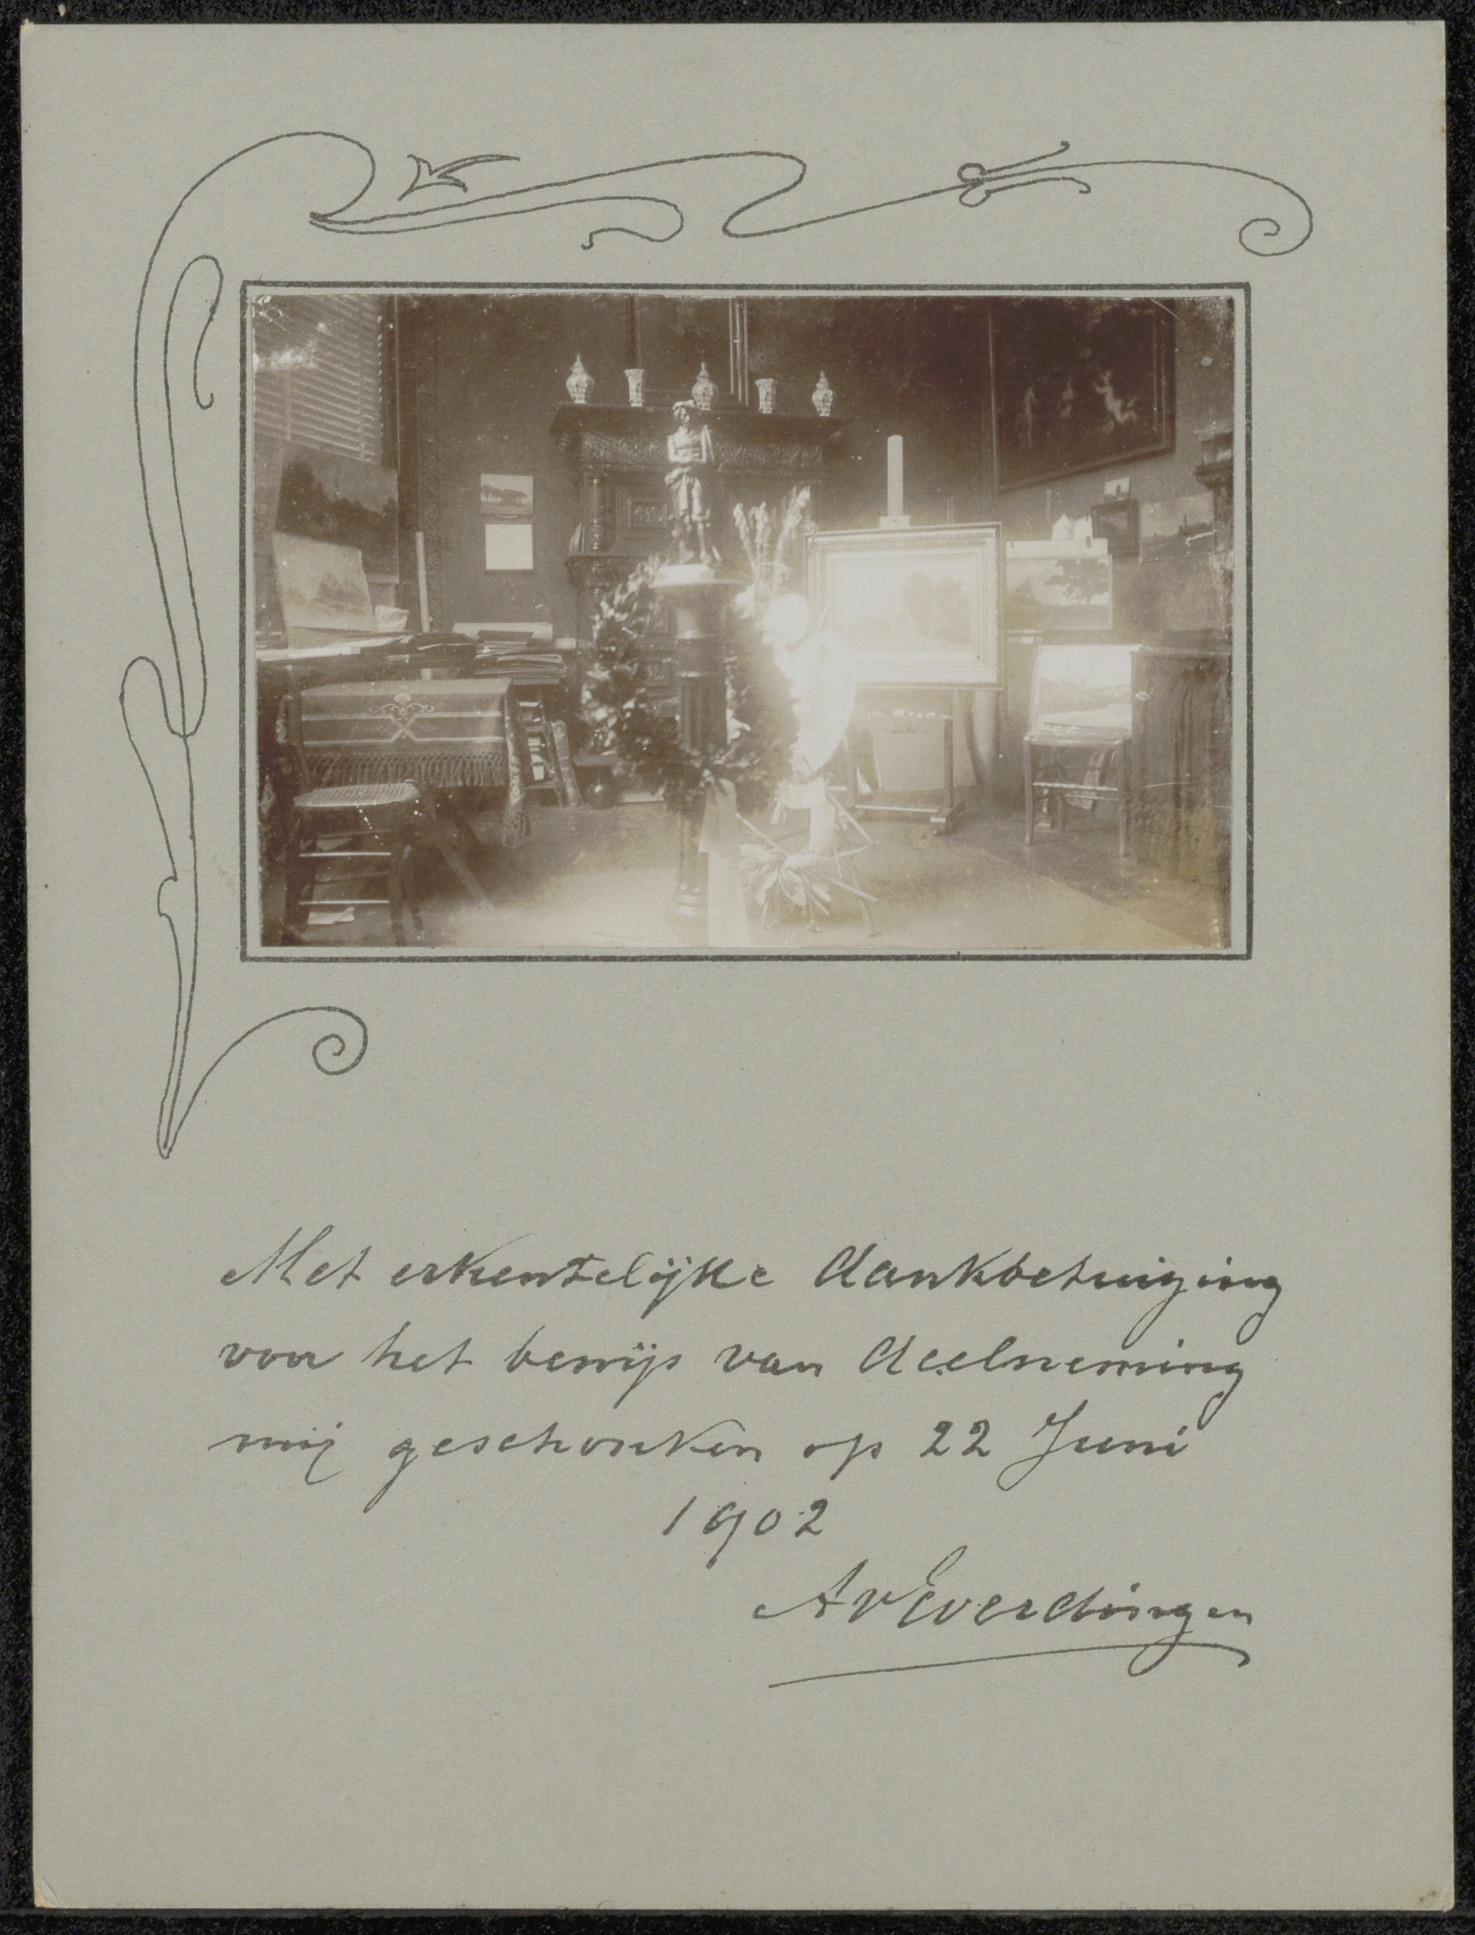 Met erkentelijke dankbetuiging
voor het bewijs van deelneming
mij geschonken op 22 Juni
1902
A v Everdingen